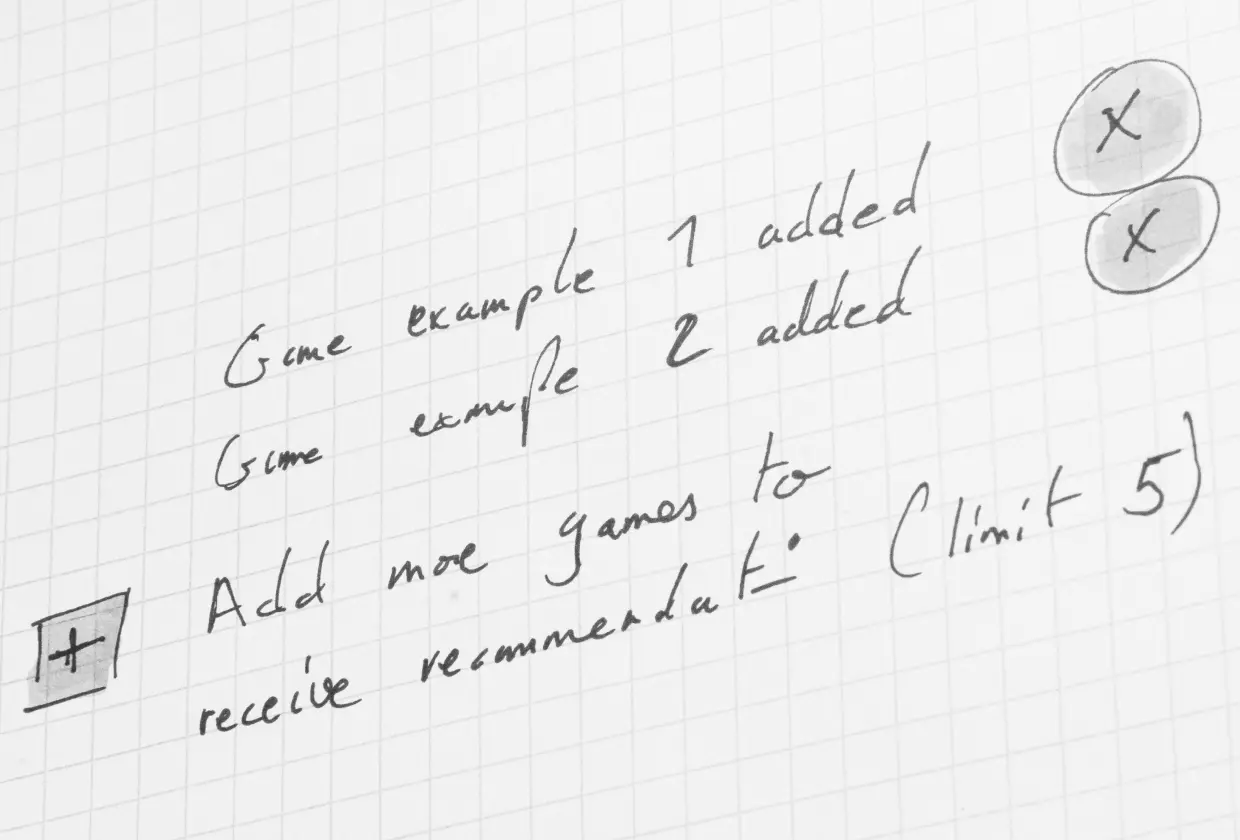 Game example 1 added X
Game example 2 added X
+ Add more games to
receive recommendati (limit 5)